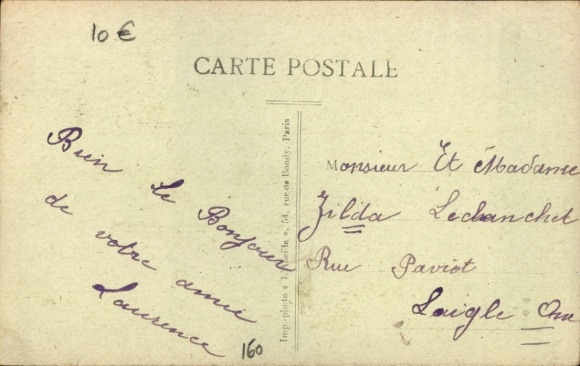 10 €
CARTE POSTALE
Bien le Bonjour
de votre amie
Laurence
160
Imp.-photo « », 54, rue de Bondy, Paris
Monsieur Et Madame
Zilda Leclanchet
Rue Paviot
Laigle Orne